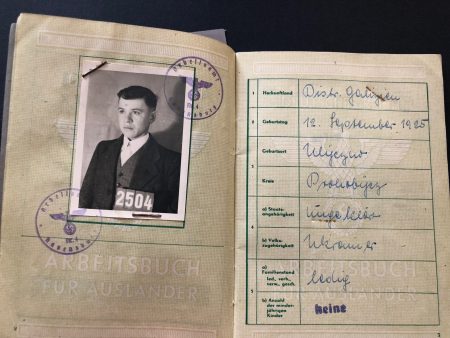 Arbeitsamt
Nr. 4
2504
Arbeitsamt
Nr. 4
ARBEITSBUCH
FÜR AUSLÄNDER
2
1 Herkunftland Distr. Galizien
2 Geburtstag 12. September 1925
3 Geburtsort
Kreis Drohobycz
a) Staats-
angehörigkeit ungeklär
4
b) Volks-
zugehörigkeit Ukrainer
a)
Familienstand
led., verh.,
verw., gesch. ledig
5
b) Anzahl
der minder-
jährigen
Kinder keine
3